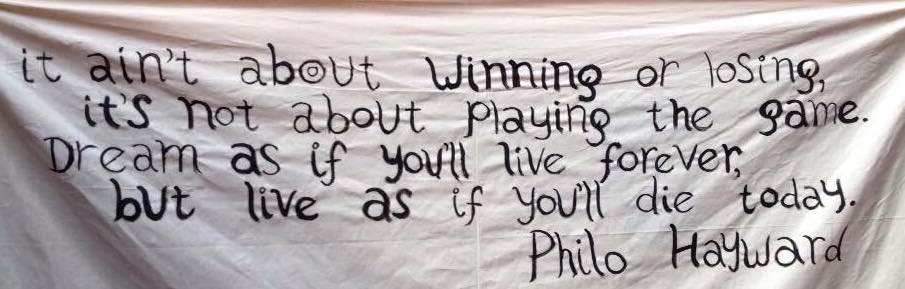 it ain't about winning or losing,
it's not about playing the game.
Dream as if you'll live forever,
but live as if you'll die today.
Philo Hayward